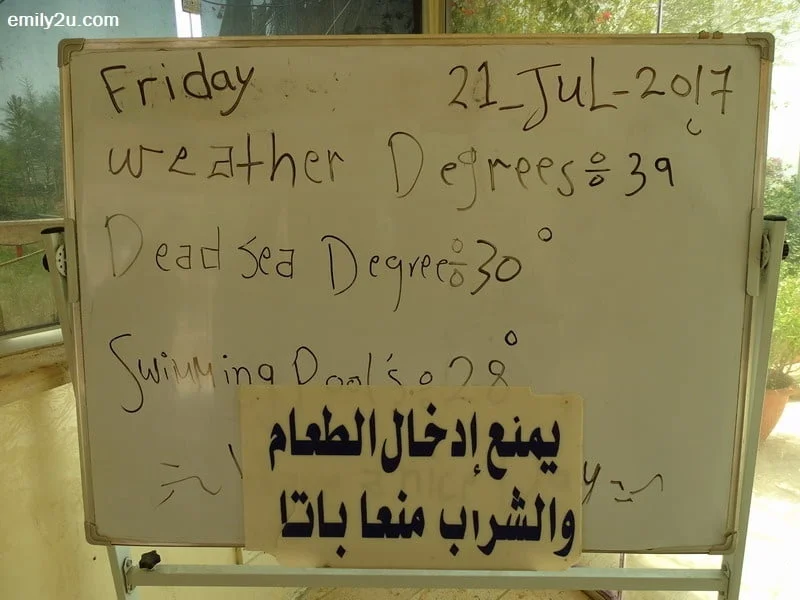 emily2u.com
Friday 21_JUL-2017
Weather Degrees÷39
Dead Sea Degree÷30°
Swimming Pool's 28°
يمنع إدخال الطعام
والشراب منعا باتا